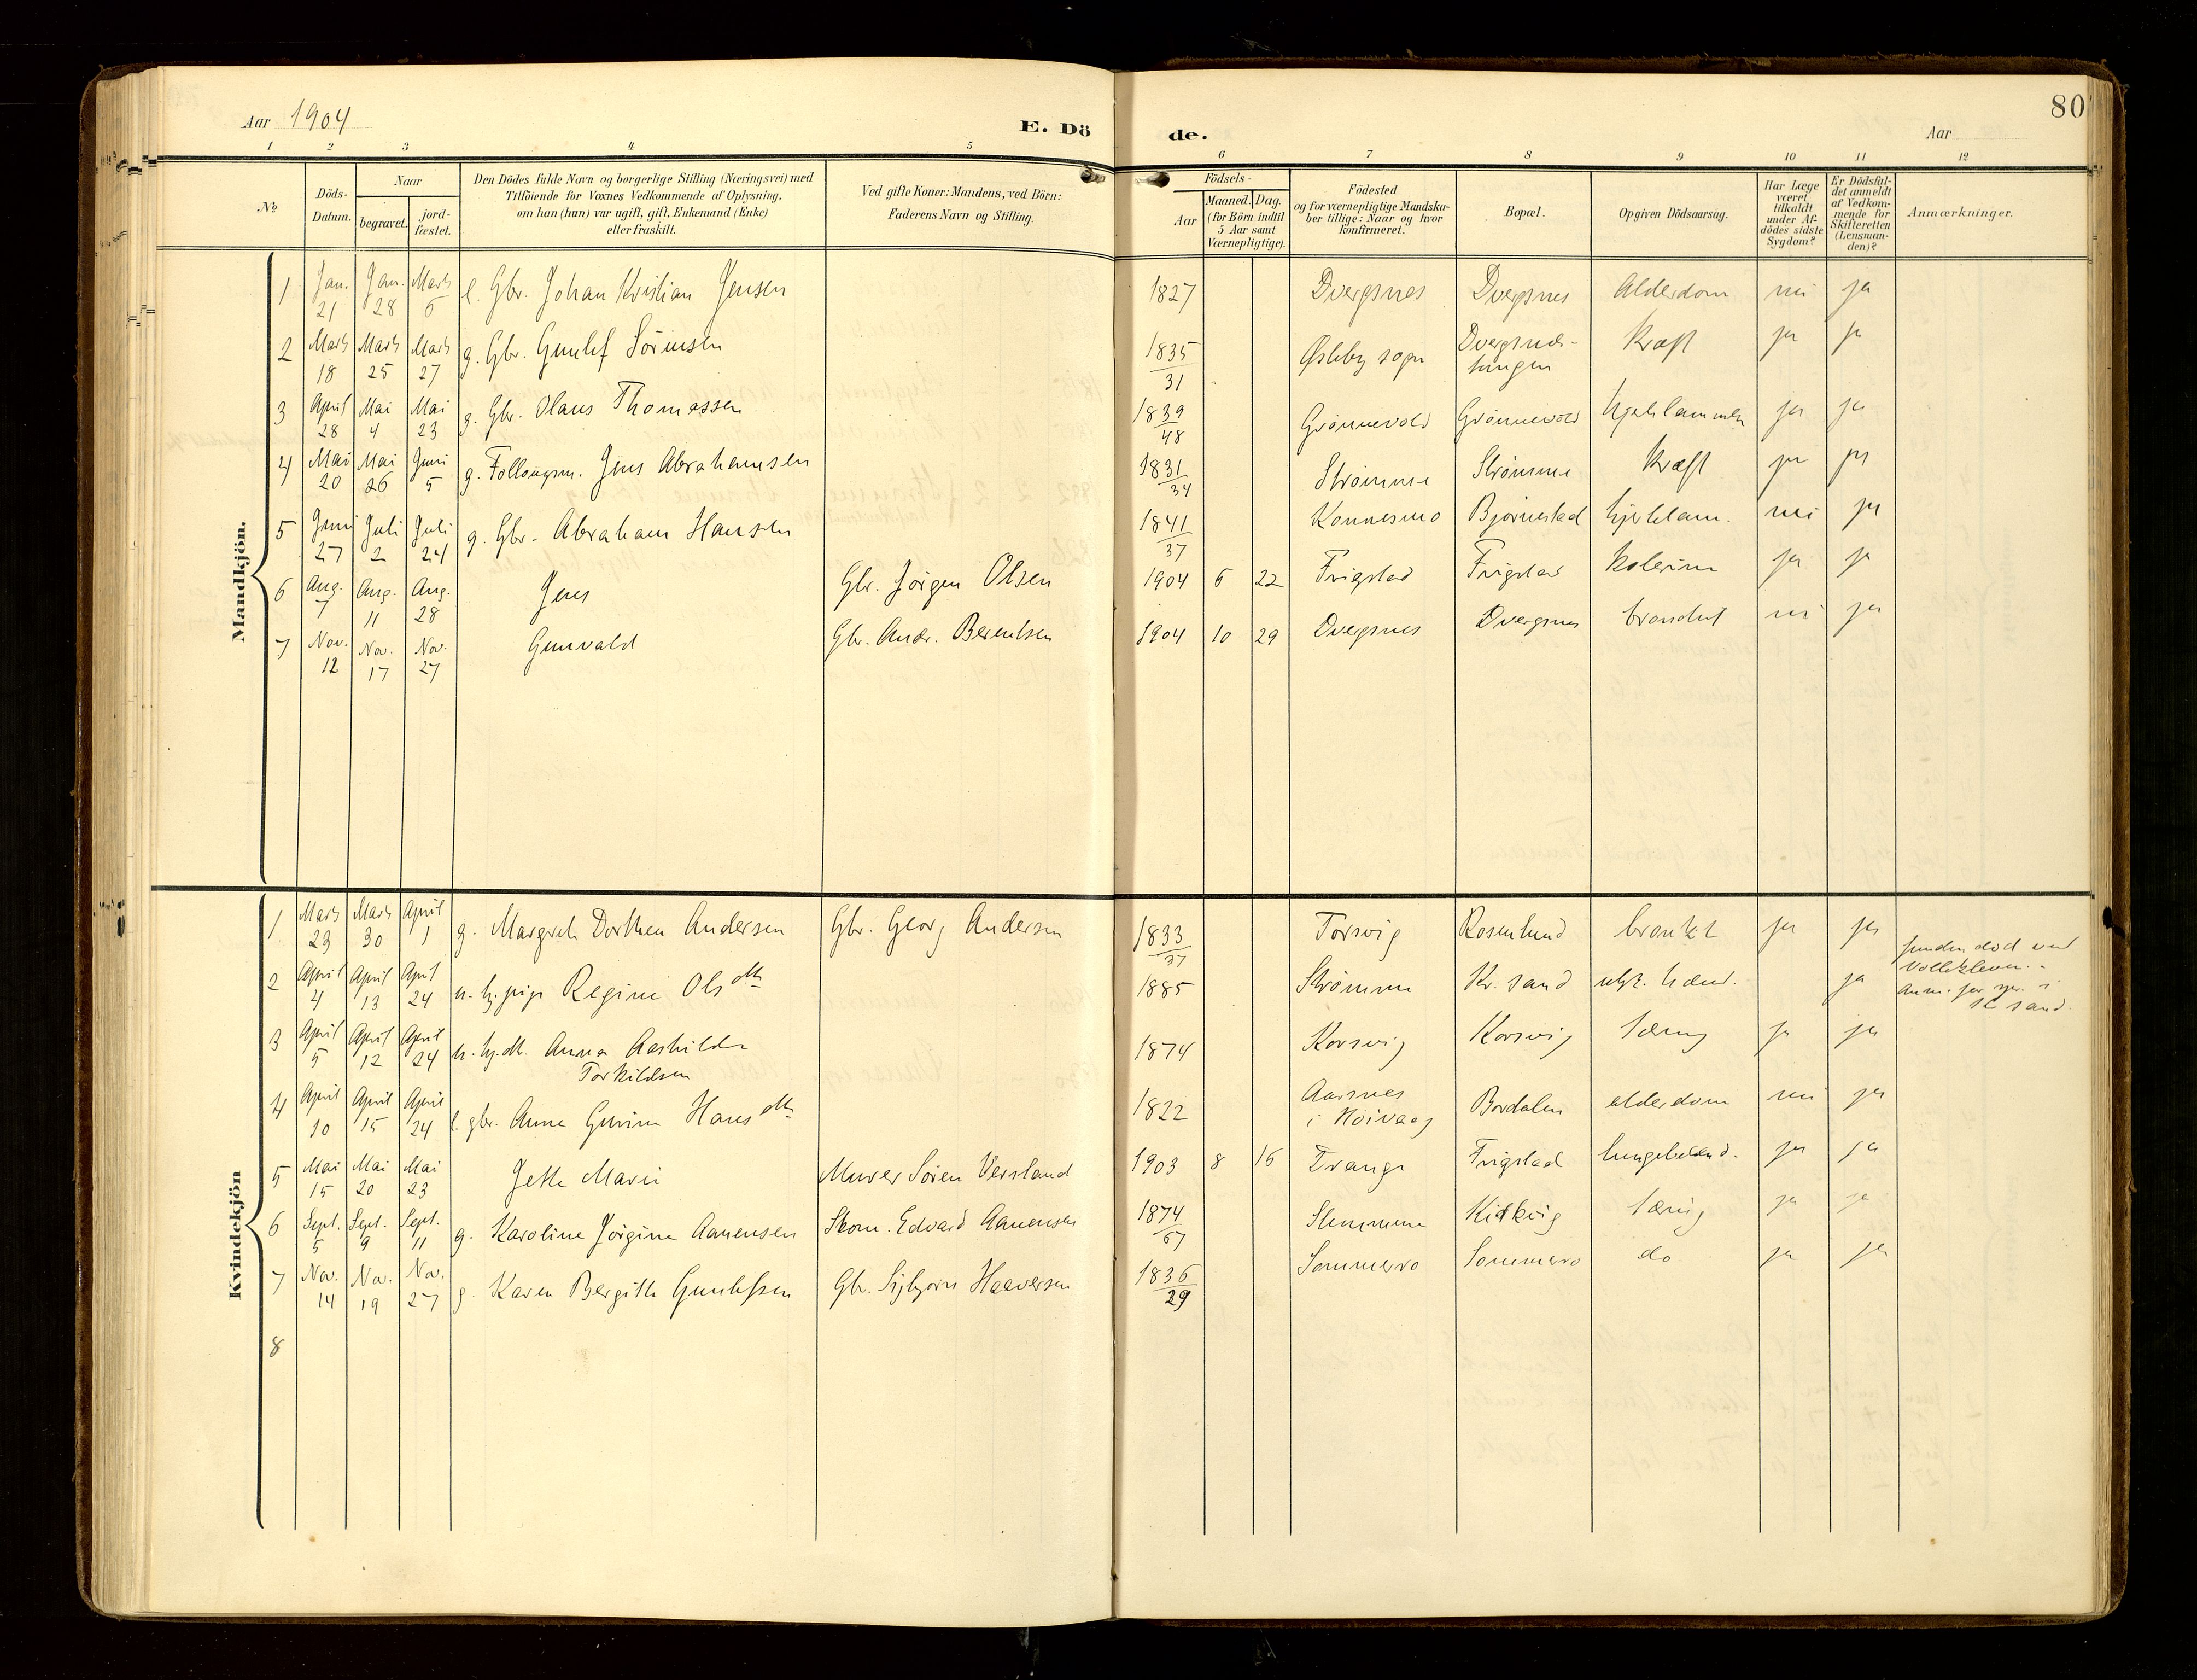 Aar 1904
E. Dö de.
80
Aar
1 2 3 4 5 6 7 8 9 10 11 12
No
Döds-Datum.
Naar
begravet.
jord-fæstet.
Den Dödes fulde Navn og borgerlige Stilling (Næringsvei) med
Tilföiende for Voxnes Vedkommende af Oplysning,
om han (hun) var ugift, gift, Enkemand (Enke)
eller fraskilt.
Ved gifte Koner: Mandens, ved Börn:
Faderens Navn og Stilling.
Födsels-
Aar
Maaned. Dag.
(for Börn indtil
5 Aar samt
Værnepligtige).
Födested
og for værnepligtige Mandska-
ber tillige: Naar og hvor
konfirmeret.
Bopæl.
Opgiven Dödsaarsag.
Har Læge
været
tilkaldt
under Af-
dödes sidste
Sygdom?
Er Dödsfal-
det anmeldt
af Vedkom-
mende for
Skifteretten
(Lensman-
den)?
Anmærkninger.
Mandkjön.
1 Jan. 21 Jan. 28 Marts 6 e. Gbr. Johan Kristian Jensen 1827 Dvergsnes Dvergsnes Alderdom nei ja
2 Marts 18 Marts 25 Marts 27 g. Gbr. Gunlef Sörensen 1835/31 Øsleby sogn Dvergsnes-tangen Kræft ja ja
3 April 28 Mai 4 Mai 23 g. Gbr. Olaus Thomassen 1839/48 Grönnevold Grönnevold hjertelammelse ja ja
4 Mai 20 Mai 26 Juni 5 g. Follougsm. Jens Abrahamsen 1831/34 Strömme Strömme Kræft ja ja
5 Juni 27 Juli 2 Juli 24 g. Gbr. Abraham Hansen 1841/37 Konnesmo Bjørnestad hjertelam. nei ja
6 Aug. 7 Aug. 11 Aug. 28 Jens Gbr. Jörgen Olsen 1904 6 22 Frigstad Frigstad Kolerine ja ja
7 Nov. 12 Nov. 17 Nov. 27 Gunvald Gbr. Andr. Berentsen 1904 10 29 Dvergsnes Dvergsnes nei ja
Kvindekjön
1 Marts 23 Marts 30 April 1 g. Margrete Dorthea Andersen Gbr. Georg Andersen 1833/37 Torsvig Rosenlund bronkt ja ja
2 April 4 April 13 April 24 u. tj.pige Regine Olsdtr 1885 Strömme Kr. sand ja
funden død ved
Anm. for
K sand.
3 April 5 April 12 April 24 u. Anna Aashilda
Torkildsen 1874 Korsvig Korsvig Tæring ja ja
4 April 10 April 15 April 24 e. gbr. Anna Gurine Hansdtr 1822 Aarsnes
i Höivaag Bordalen alderdom nei ja
5 Mai 15 Mai 20 Mai 23 Jette Marie Murer Sören Versland 1903 8 16 Tvange Frigstad lungebetænd. ja ja
6 Sept. 5 Sept. 9 Sept. 11 g. Karoline Jörgine Aanensen Skom. Edvard Aanensen 1874/67 Stemmene Kirkvig Tæring ja ja
7 Nov. 14 Nov. 19 Nov. 27 g. Karen Bergitte Gunlefsen Gbr. Sigbjørn Haaversen 1836/29 Sommero Sommero do ja ja
8